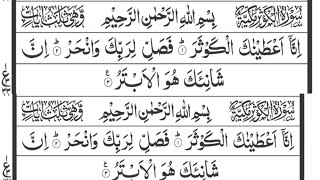 سُوْرَةُ الْكَوْثَرِ مَكِّيَّةٌ بِسْمِ اللهِ الرَّحْمٰنِ الرَّحِيْمِ وَهِيَ ثَلٰثُ اٰيَاتٍ
اِنَّاۤ اَعْطَيْنٰكَ الْكَوْثَرَ ۱ فَصَلِّ لِرَبِّكَ وَانْحَرْ ۲ اِنَّ
شَانِئَكَ هُوَ الْاَبْتَرُ ۳
سُوْرَةُ الْكَوْثَرِ مَكِّيَّةٌ بِسْمِ اللهِ الرَّحْمٰنِ الرَّحِيْمِ وَهِيَ ثَلٰثُ اٰيَاتٍ
اِنَّاۤ اَعْطَيْنٰكَ الْكَوْثَرَ ۱ فَصَلِّ لِرَبِّكَ وَانْحَرْ ۲ اِنَّ
شَانِئَكَ هُوَ الْاَبْتَرُ ۳